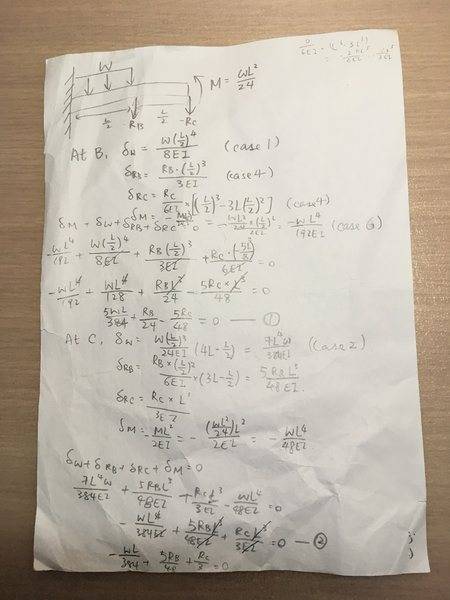 W
M = WL²/24
L/2 -RB L/2 -RC
At B, δw = W(L/2)⁴/8EI (case 1)
δRB = RB·(L/2)³/3EI (case 4)
δRC = RC/6EI × [(L/2)³ - 3L(L/2)²] (case 4)
δM + δw + δRB + δRC = 0
-WL⁴/192EI (case 6)
-WL⁴/192 + W(L/2)⁴/8EI + RB(L/2)³/3EI + RC·(-5L³/8)/6EI = 0
-WL⁴/192 + WL⁴/128 + RBL³/24 - 5RC×L³/48 = 0
5WL/384 + RB/24 - 5RC/48 = 0 — ①
At C, δw = W(L/2)³/24EI (4L-L/2) = 7L⁴W/384EI (case 2)
δRB = RB×(L/2)²/6EI ×(3L-L/2) = 5RBL³/48EI
δRC = RC×L³/3EI
δM = -ML²/2EI = -(WL²/24)L²/2EI = -WL⁴/48EI
δw + δRB + δRC + δM = 0
7L⁴W/384EI + 5RBL³/48EI + RCL³/3EI - WL⁴/48EI = 0
-WL⁴/384EI + 5RBL³/48EI + RCL³/3EI = 0 — ②
-WL/384 + 5RB/48 + RC/3 = 0